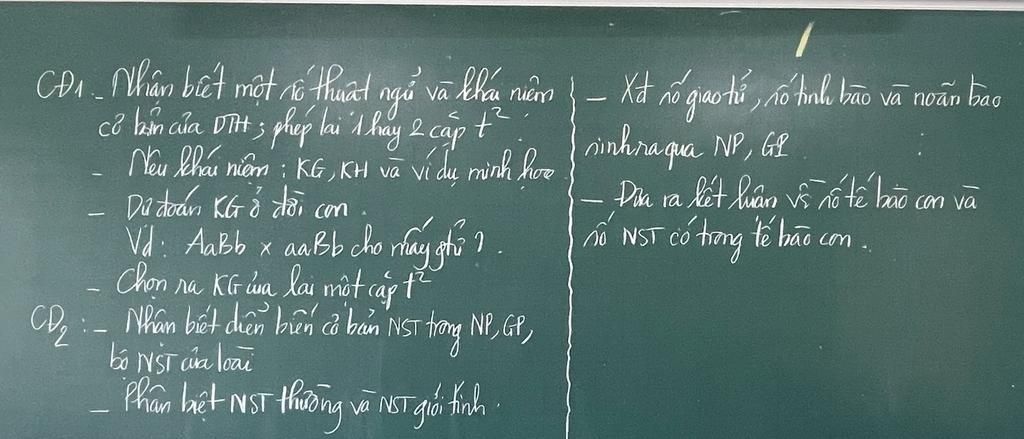 CĐ1 - Nhận biết một số thuật ngữ và khái niệm
cơ bản của DTH; phép lai 1 hay 2 cặp t²
- Nêu khái niệm : KG, KH và ví dụ minh họa
- Dự đoán KG ở đời con.
Vd: AaBb x aaBb cho mấy gtử ?
- Chọn ra KG của lai một cặp t²
CĐ2 : - Nhận biết diễn biến cơ bản NST trong NP, GP,
bộ NST của loài
- Phân biệt NST thường và NST giới tính.
- Xđ số giao tử, số tinh bào và noãn bào
sinh ra qua NP, GP
- Đưa ra kết luận về số tế bào con và
số NST có trong tế bào con.